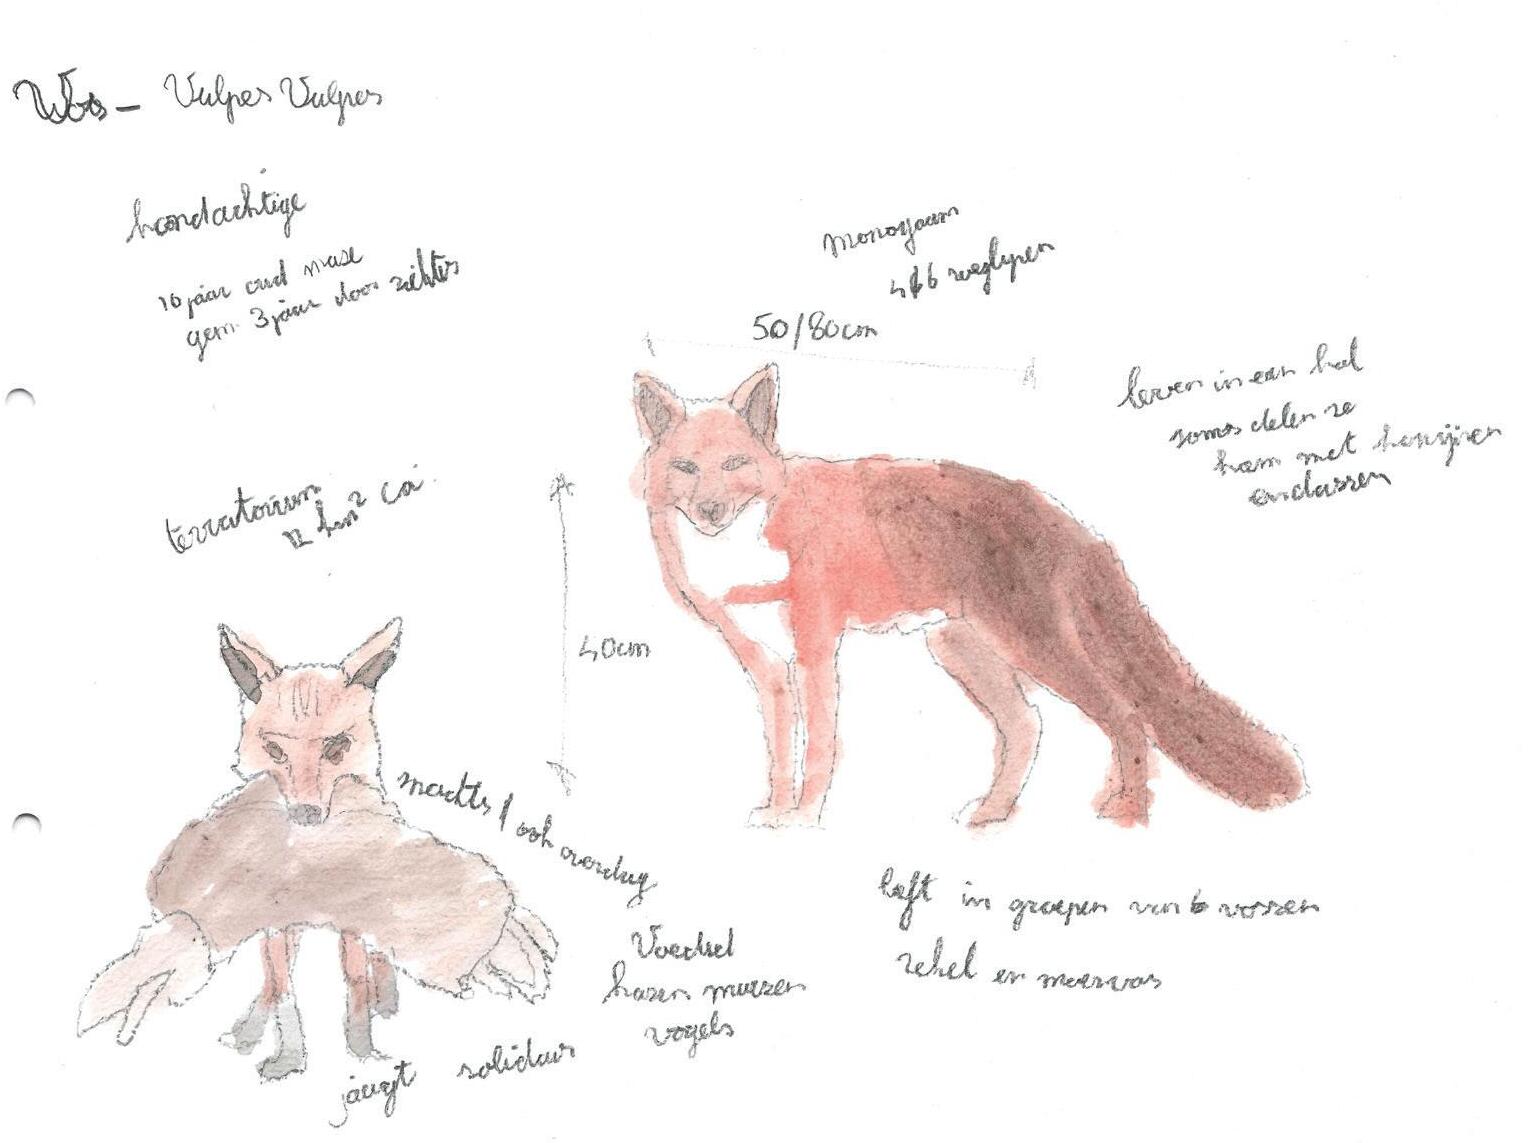 Vos - Vulpes Vulpes
hondachtige
10 jaar oud max
gem 3 jaar door ziktes
monogaam
4 / 6 welpen
50/80cm
leven in een hol
soms delen ze
hem met konijnen
en dassen
terratorium
12 km² ca.
40cm
nachts / ook overdag
leeft in groepen van 6 vossen
rekel en moervos
Voedsel
hazen muizen
vogels
jaagt solidair